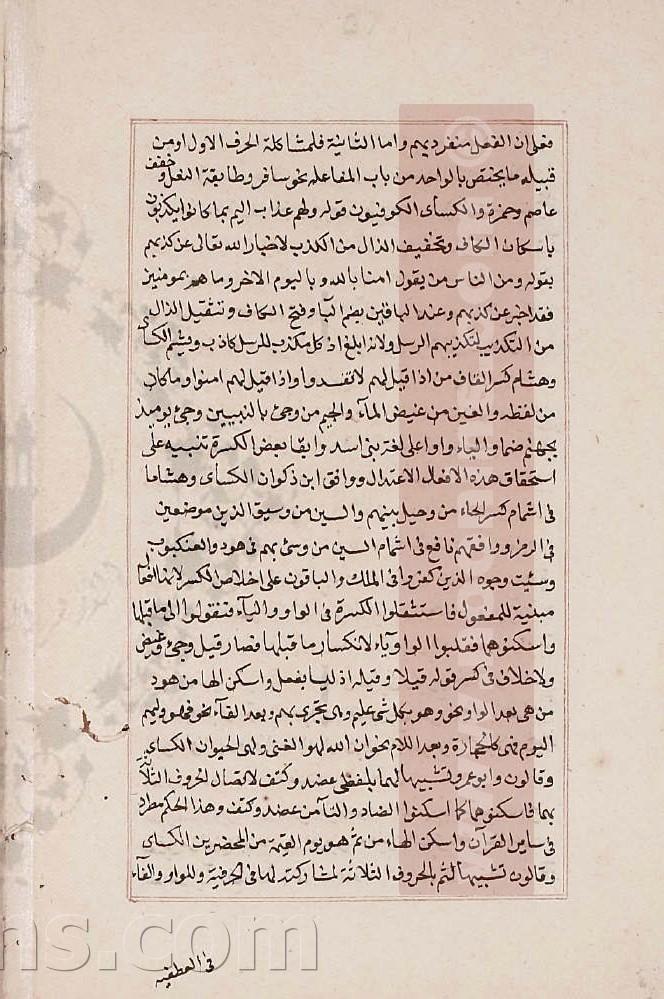 فعلى ان الفعل منفرد بهم واما الثانية فلمشاكلة الحرف الاول او من
قبيله ما يختص بالواحد من باب المفاعله نحو سافر وطابقة النعل وخفف
عاصم وحمزة والكسأى الكوفيون قوله ولهم عذاب اليم بما كانوا يكذبون
باسكان الكاف وتخفيف الذال من الكذب لاخبار الله تعالى عن كذبهم
بقوله ومن الناس من يقول امنا بالله وباليوم الاخر وما هم بمومنين
فقد اخبر عن كذبهم وعند الباقين بضم اليا وفتح الكاف وتثقيل الذال
من التكذيب لتكذيبهم الرسل ولانه ابلغ اذ كل مكذب للمرسل كاذب ويشم الكسأى
وهشام كسر القاف من اذا قيل لهم لا تفسدوا واذا قيل لهم امنوا وما كان
من لفظه والغين من غيض المآء والجيم من وجئ بالنبيين وجئ يوميذ
بجهنم ضما والياء واوا على لغة بنى اسد وابقا بعض الكسرة تنبيه على
استحقاق هذه الافعال الاعتدال ووافق ابن ذكوان الكسأى وهشاما
فى اشمام كسر الحاء من وحيل بينهم والسين من وسيق الذين موضعين
فى الزمر ووافقهم نافع فى اشمام السين من وسئ بهم فى هود والعنكبوت
وسئيت وجوه الذين كفروا فى الملك والباقون على اخلاص الكسر لانها افعال
مبنية للمفعول فاستثقلوا الكسرة فى الواو واليآء فنقولوا الى ما قبلها
واسكنوهما فقلبوا الواو يآء لانكسار ما قبلها فصار قيل وجئ وغيض
ولا خلاف فى كسر قوله قيلا وقيله اذ ليسا بفعل واسكن الها من هود
من هى بعد الواو نحو وهو بكل شئ عليم وهى تجرى بهم وبعد الفآء نحو فهو وليهم
اليوم فهى كالحجارة وبعد اللام نحو ان الله لهو الغنى ولهى الحيوان الكسأى
وقالون وابو عمرو تشبيها لهما بلفظى عضد وكتف لاتصال الحروف الثلاثة
بهما فاسكنوهما كما اسكنوا الضاد والتآ من عضد وكتف وهذا الحكم مطرد
فى ساير القرآن واسكن الهاء من ثم هو يوم القيمة من المحضرين الكسأى
وقالون تشبيها لثم بالحروف الثلاثة لمشاركته لها فى الحرفية وللواو والفآء
فى العطفيه
ns.com